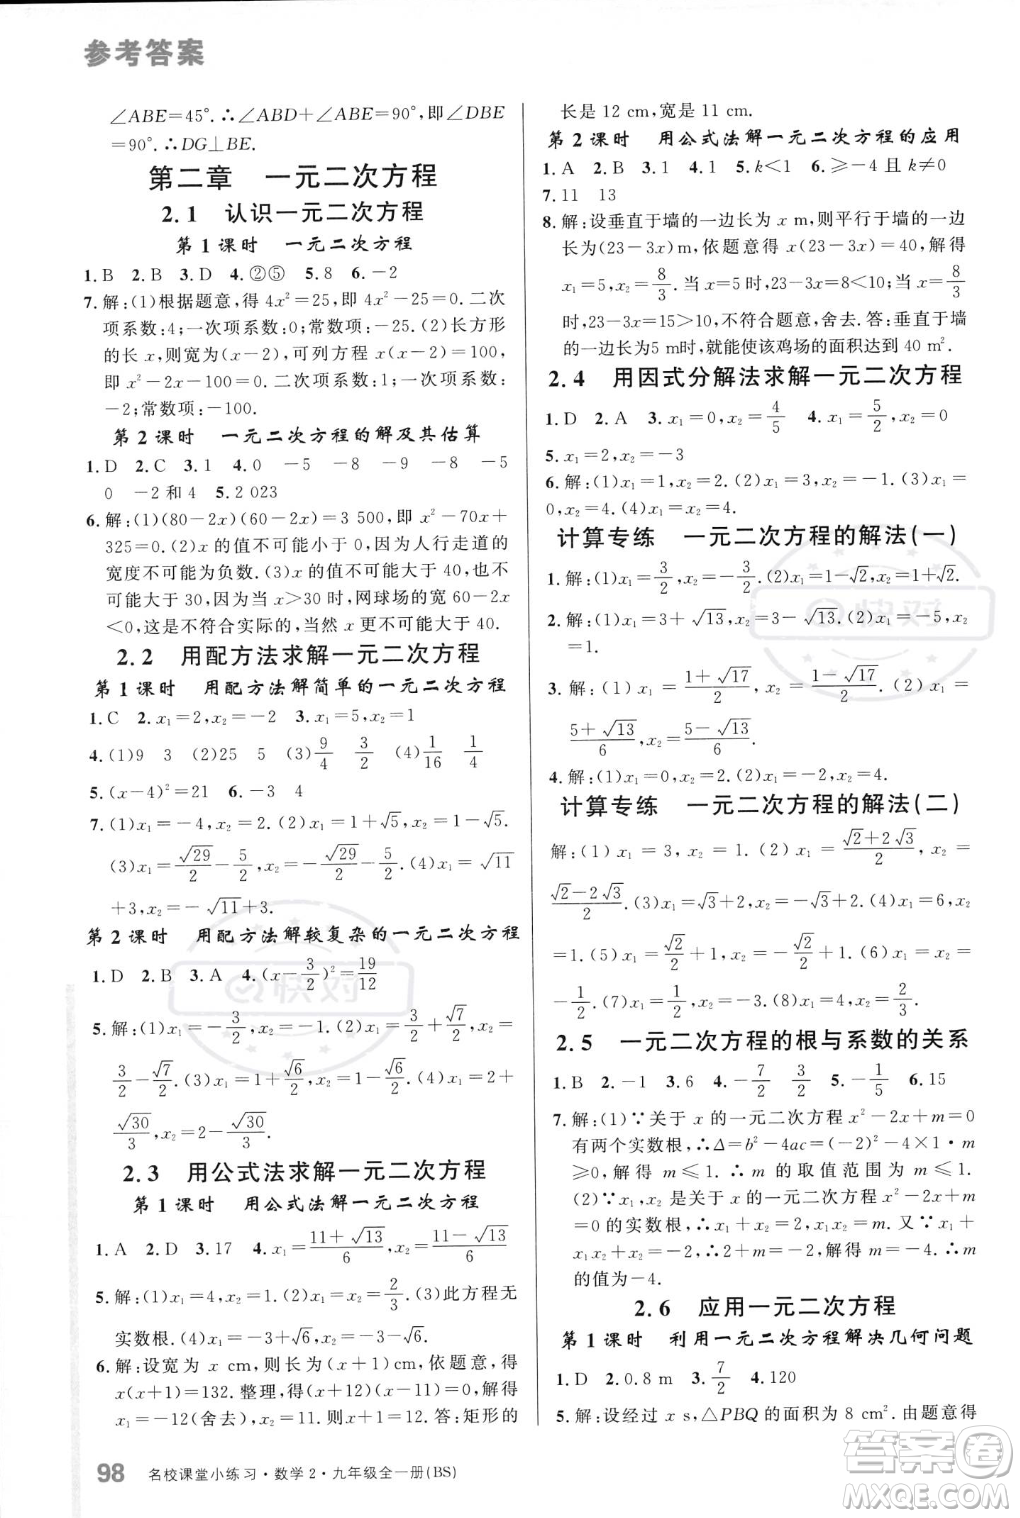 参考答案
∠ABE=45°.∴∠ABD+∠ABE=90°,即∠DBE
=90°.∴DG⊥BE.
第二章 一元二次方程
2.1 认识一元二次方程
第1课时 一元二次方程
1.B 2.B 3.D 4.②⑤ 5.8 6.-2
7.解:(1)根据题意,得4x²=25,即4x²-25=0.二次
项系数:4;一次项系数:0;常数项:-25.(2)长方形
的长x,则宽为(x-2),可列方程x(x-2)=100,
即x²-2x-100=0.二次项系数:1;一次项系数:
-2;常数项:-100.
第2课时 一元二次方程的解及其估算
1.D 2.C 3.1 4.0 -5 -8 -9 -8 -5
0 -2和4 5.2 023
6.解:(1)(80-2x)(60-2x)=3 500,即x²-70x+
325=0.(2)x的值不可能小于0,因为人行走道的
宽度不可能为负数.(3)x的值不可能大于40,也不
可能大于30,因为当x>30时,网球场的宽60-2x
<0,这是不符合实际的,当然x更不可能大于40.
2.2 用配方法求解一元二次方程
第1课时 用配方法解简单的一元二次方程
1.C 2.x₁=2,x₂=-2 3.x₁=5,x₂=1
4.(1)9 3 (2)25 5 (3)9/4 3/2 (4)1/16 1/4
5.(x-4)²=21 6.-3 4
7.(1)x₁=-4,x₂=2.(2)x₁=1+√5,x₂=1-√5.
(3)x₁=√29/2-5/2,x₂=-√29/2-5/2.(4)x₁=√11
+3,x₂=-√11+3.
第2课时 用配方法解较复杂的一元二次方程
1.D 2.B 3.A 4.(x-3/2)²=19/12
5.解:(1)x₁=-3/2,x₂=1.(2)x₁=3/2+√7/2,x₂=
3/2-√7/2.(3)x₁=1+√6,x₂=1-√6.(4)x₁=2+
√30/3,x₂=2-√30/3.
2.3 用公式法求解一元二次方程
第1课时 用公式法解一元二次方程
1.A 2.D 3.17 4.x₁=(11+√13)/6,x₂=(11-√13)/6
5.解:(1)x₁=4,x₂=1.(2)x₁=x₂=2/3.(3)此方程无
实数根.(4)x₁=-1+√6,x₂=-1-√6.
6.解:设宽为x cm,则长为(x+1)cm,依题意,得
x(x+1)=132.整理,得x²+x-132=0.解得
x₁=-12(舍去),x₂=11.x+1=12.答:矩形的
长是12 cm,宽是11 cm.
第2课时 用公式法解一元二次方程的应用
1.A 2.B 3.D 4.1 5.k<1 6.≥-4且k≠0
7.11 13
8.解:设垂直于墙的一边长为x m,则平行于墙的一边
长为(23-3x)m,依题意得x(23-3x)=40,解得
x₁=5,x₂=8/3.当x=5时,23-3x=8<10;当x=8/3
时,23-3x=15>10,不符合题意,舍去.答:垂直于墙
的一边长为5 m时,就能使该鸡场的面积达到40 m².
2.4 用因式分解法求解一元二次方程
1.D 2.A 3.x₁=0,x₂=4/5 4.x₁=5/2,x₂=0
5.x₁=2,x₂=-3
6.解:(1)x₁=x₂=1.(2)x₁=-4,x₂=2.(3)x₁=
0,x₂=4.(4)x₁=2,x₂=4.
计算专练 一元二次方程的解法(一)
1.解:(1)x₁=3/2,x₂=-3/2.(2)x₁=1-√2,x₂=1+√2.
2.解:(1)x₁=3+√13,x₂=3-√13.(2)x₁=-5,x₂
=1.
3.解:(1)x₁=(1+√17)/2,x₂=(1-√17)/2.(2)x₁=
(5+√13)/6,x₂=(5-√13)/6.
4.解:(1)x₁=0,x₂=2.(2)x₁=-2,x₂=4.
计算专练 一元二次方程的解法(二)
解:(1)x₁=3,x₂=1.(2)x₁=(√2+2√3)/2,x₂=
(√2-2√3)/2.(3)x₁=-1,x₂=6.(4)x₁=9,x₂
=1.(5)x₁=√2/2+1,x₂=-√2/2+1.(6)x₁=x₂=
-1/2.(7)x₁=1,x₂=-3.(8)x₁=4,x₂=2/3.
2.5 一元二次方程的根与系数的关系
1.B 2.-1 3.6 4.-7/2 3/2 5.-1/5 6.15
7.解:(1)∵关于x的一元二次方程x²-2x+m=0
有两个实数根,∴Δ=b²-4ac=(-2)²-4×1·m
≥0.解得m≤1.∴m的取值范围为m≤1.
(2)∵x₁,x₂是关于x的一元二次方程x²-2x+m
=0的实数根,∴x₁+x₂=2,x₁x₂=m.又∵x₁-x₂
=6x₂,∴x₁=4,x₂=-1.∴m=x₁x₂=-4.∴m
的值为-4.
2.6 应用一元二次方程
第1课时 利用一元二次方程解决几何问题
1.D 2.0.8 m 3.7/2 4.120
5.解:设经过x s,△PBQ的面积为8 cm².由题意得
98 名校课堂小练习·数学2·九年级全一册(BS)
快对
快对
答案圈
MXQE.COM